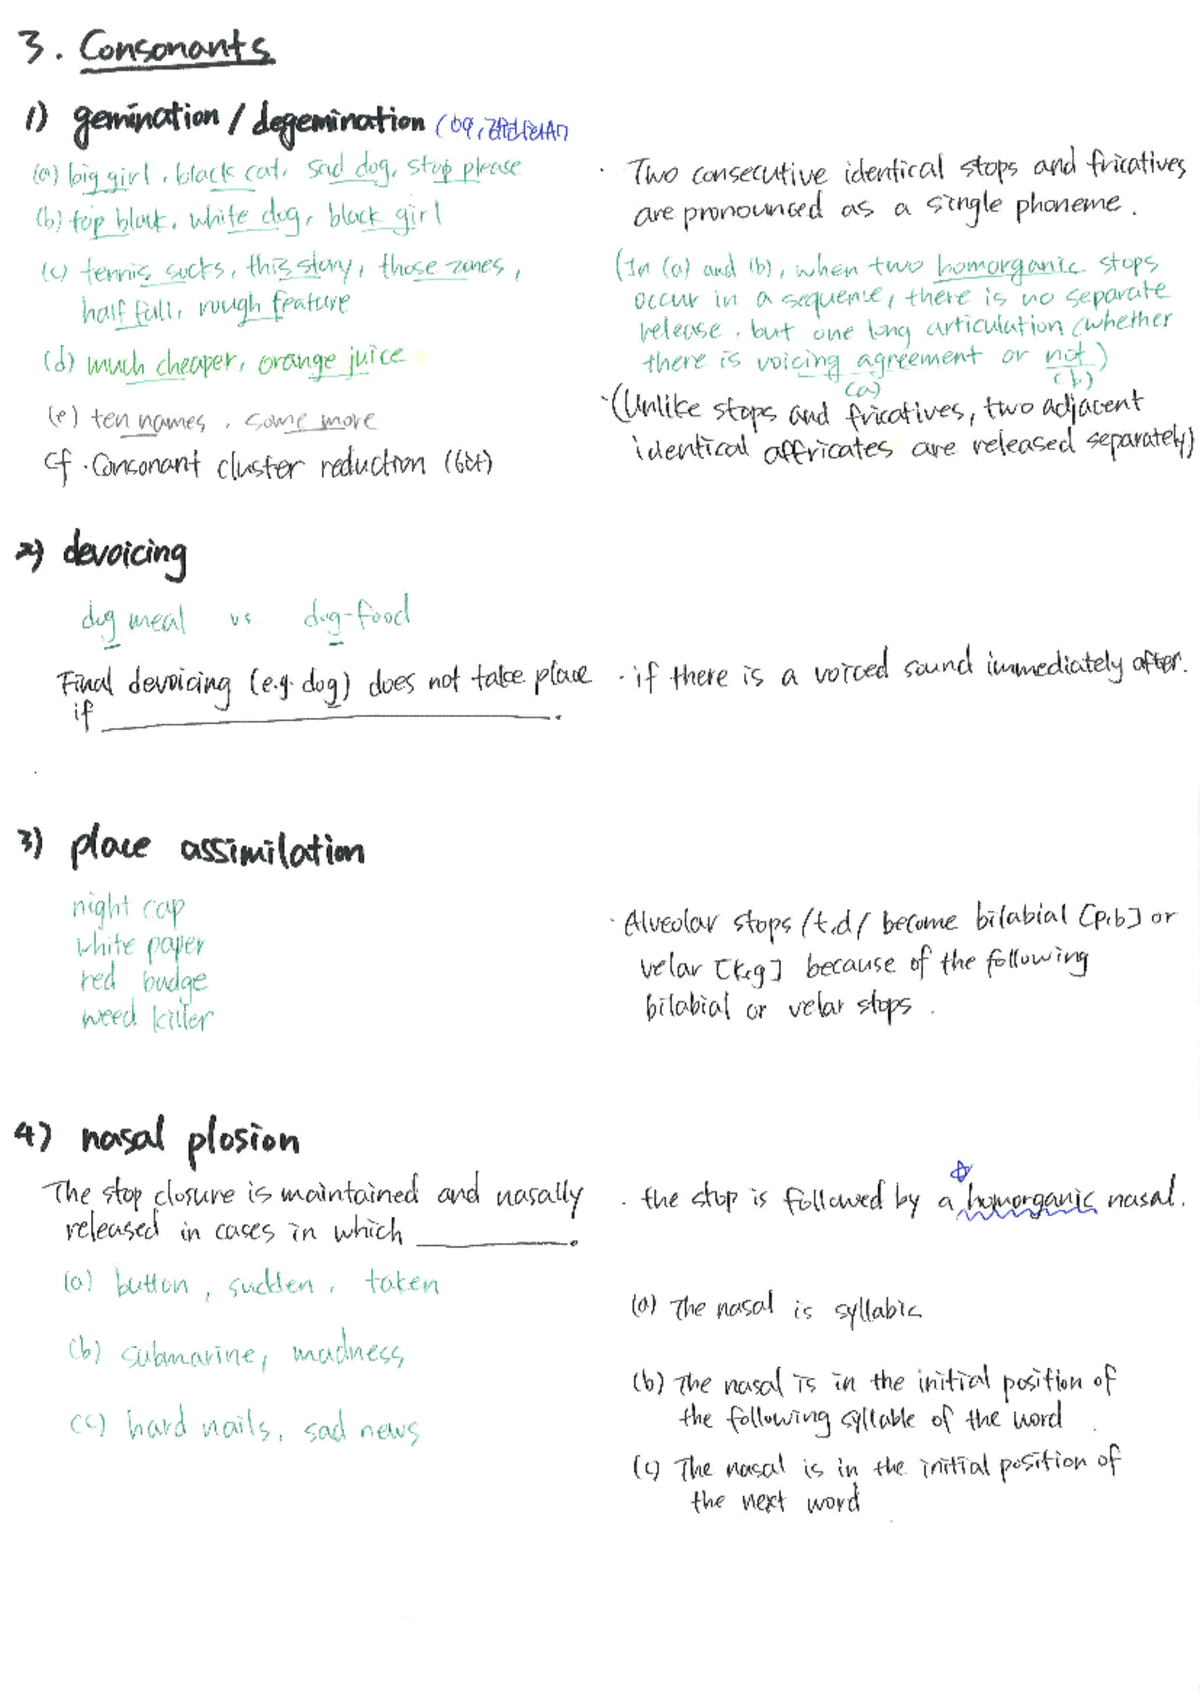 3. Consonants
1) gemination / degemination (09,
(a) big girl, black cat, sad dog, stop please
(b) top block, white dog, black girl
(c) tennis sucks, this story, those zones,
half full, rough feature
(d) much cheaper, orange juice
(e) ten names, some more
cf. Consonant cluster reduction
· Two consecutive identical stops and fricatives
are pronounced as a single phoneme.
(In (a) and (b), when two homorganic stops
occur in a sequence, there is no separate
release, but one long articulation (whether
there is voicing agreement or not)
(a) (b)
·(Unlike stops and fricatives, two adjacent
identical affricates are released separately)
2) devoicing
dog meal vs dog-food
Final devoicing (e.g. dog) does not take place
if ____________.
· if there is a voiced sound immediately after.
3) place assimilation
night cap
white paper
red budge
weed killer
· Alveolar stops /t,d/ become bilabial [p,b] or
velar [k,g] because of the following
bilabial or velar stops.
4) nasal plosion
The stop closure is maintained and nasally
released in cases in which ________.
· the stop is followed by a homorganic nasal.
(a) button, sudden, taken
(b) submarine, madness
(c) hard nails, sad news
(a) The nasal is syllabic
(b) The nasal is in the initial position of
the following syllable of the word
(c) The nasal is in the initial position of
the next word